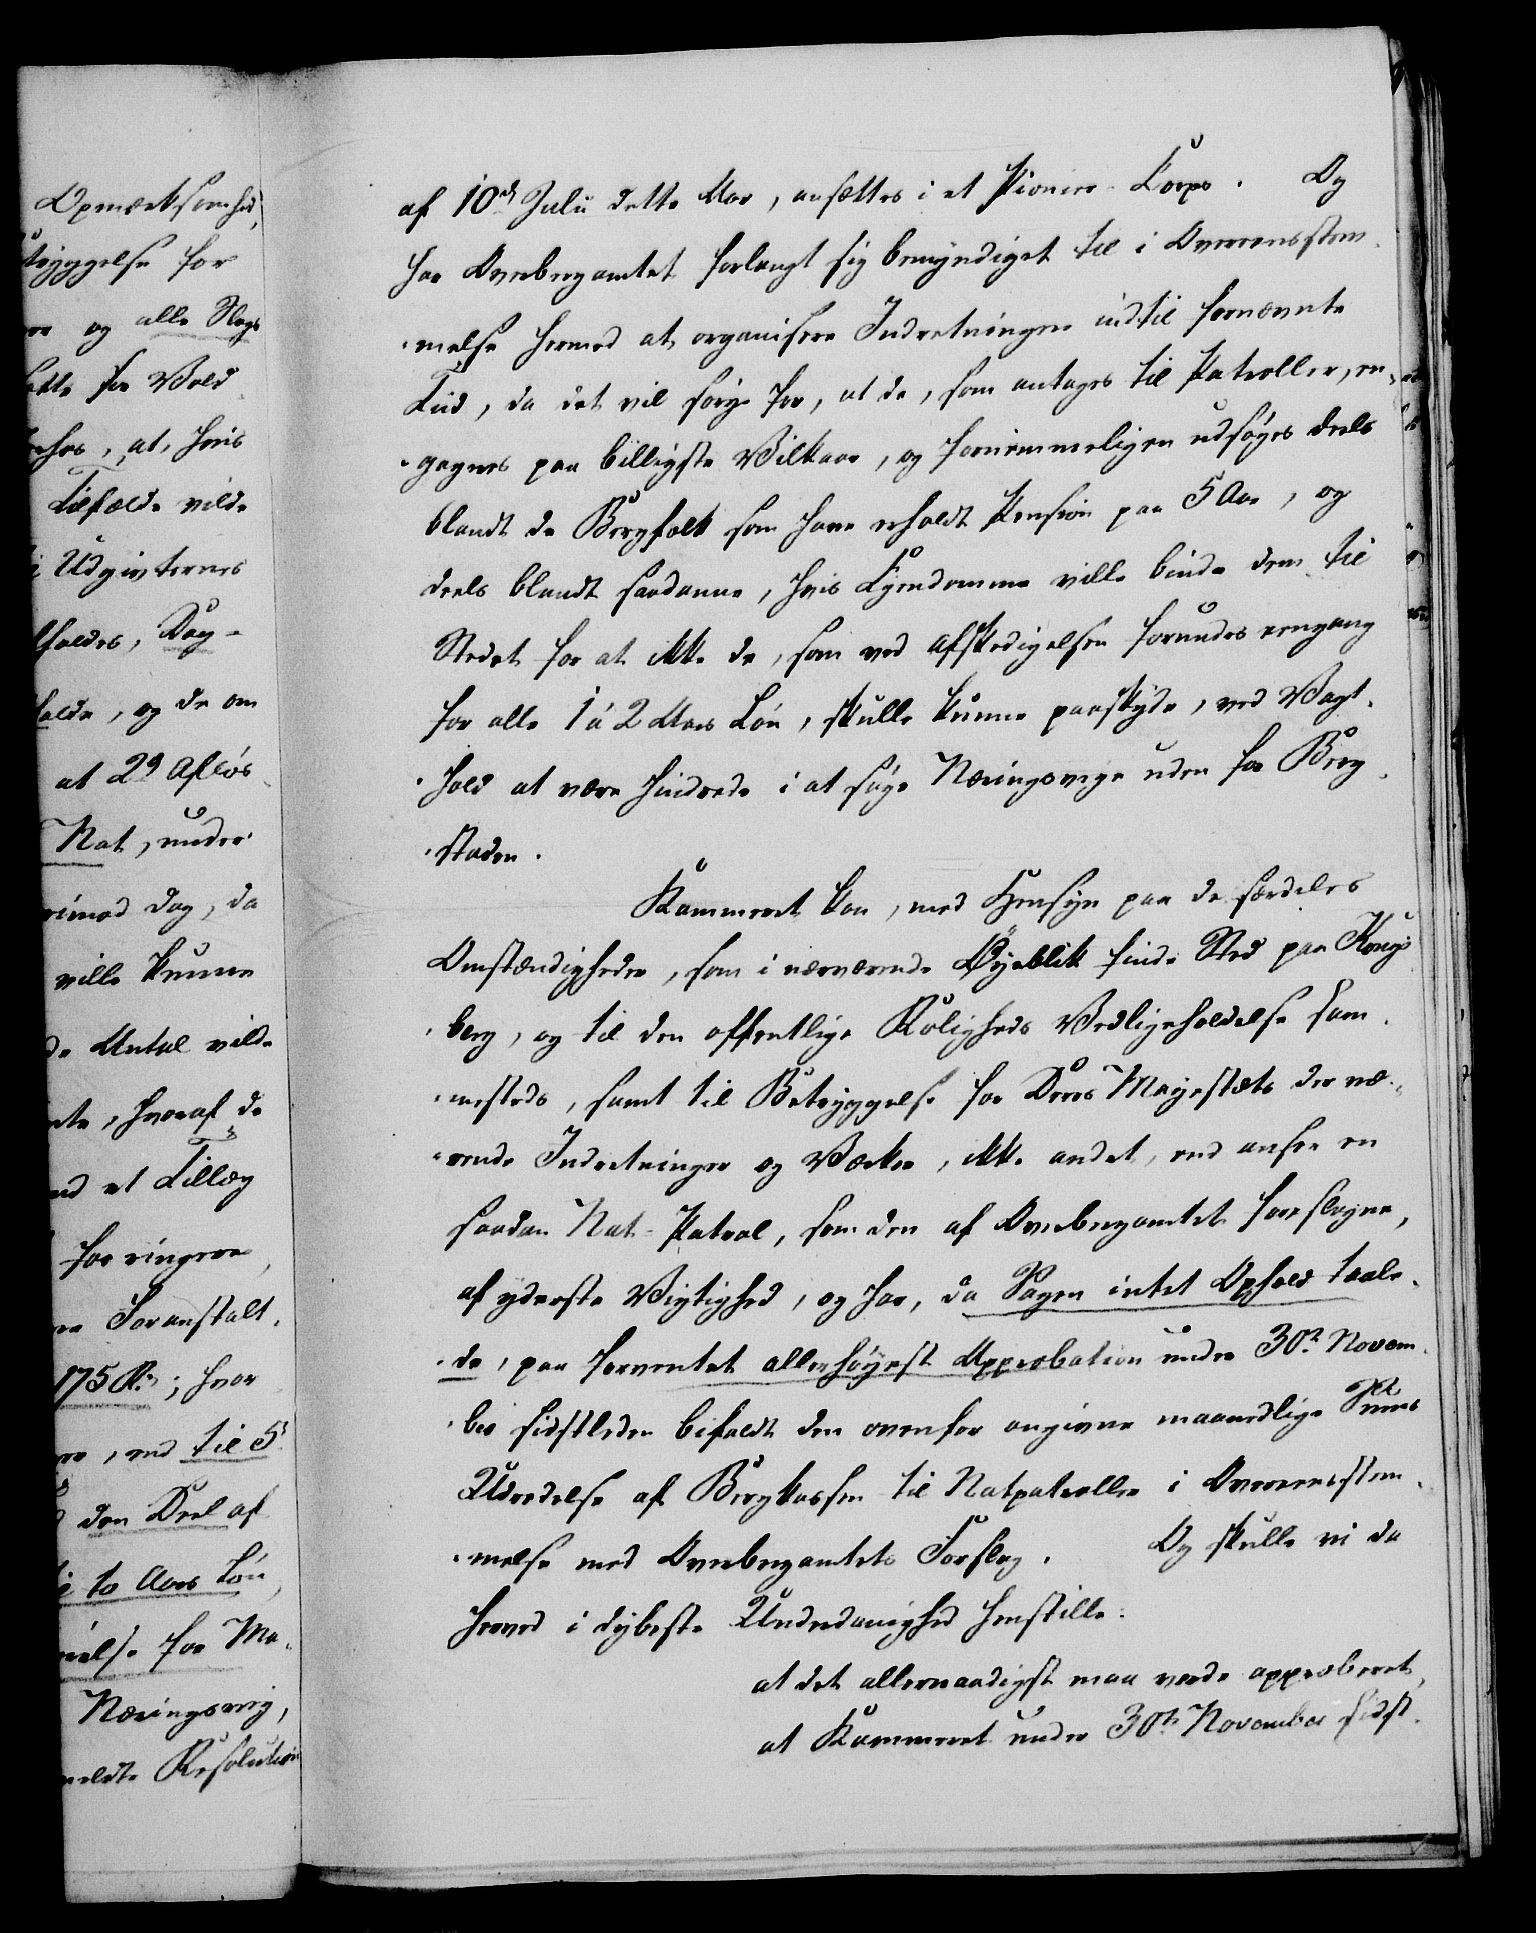 Opmærksomhed,
tryggelse for
og alle Slags
satte for Vold
at, hvis
Tilfælde vilde
i Udgivternes
holdes, Dag-
holde, og de om
at 29 Afløs
Nat, under
rimod Dag, da
ville kunne
de Antal vilde
hvoraf de
et Tillæg
for ringere,
Foranstalt.
175 Rd; hvor
end til 5
den Deel af
to Aars Løn,
else for Ma-
Næringsvej,
meldte Resolution
af 10de Julii dette Aar, ansættes i et Pioneer-Corps. Og
har Overbergamtet forlangt sig bemyndiget til i Overeensstem-
-melse hermed at organisere Indretningen indtil fornævnte
Tiid, da det vil sørge for, at de, som antages til Patroller, en-
-gageres paa billigste Vilkaar, og fornemmeligen udsøges deels
blandt de Bergfolk som have erholdt Pension paa 5 Aar, og
deels blandt saadanne, hvis Ejendomme ville binde dem til
Stedet for at ikke de, som ved Afskedigelsen forundes eengang
for alle 1 à 2 Aars Løn, skulle kunne paaskyde, ved Vagt-
-hold at være hindrede i at søge Næringsveye uden for Berg-
-staden.
Kammeret kan, med Hensyn paa de særdeles
Omstændigheder, som i nærværende Øyeblik finde Sted paa Kongs-
-berg, og til den offentlige Roligheds Vedligeholdelse sam-
-mesteds, samt til Betryggelse for Deres Majestæts der væ-
-rende Indretninger og Værker, ikke andet, end ansee en
saadan Nat-Patrol, som den af Overbergamtet foreslagne,
af yderste Vigtighed, og har, da Sagen intet Ophold taale-
-de, paa forventet allerhøyest Approbation under 30te Novem-
-ber sidstleden bifaldt den ovenfor angivne maanedlige Summes
Udredelse af Bergkassen til Natpatroller i Overeensstem-
-melse med Overbergamtets Forslag. Og skulle vi da
herved i dybeste Underdanighed henstille:
at det allernaadigst maa vorde approberet,
at Kammeret under 30te November sidst-